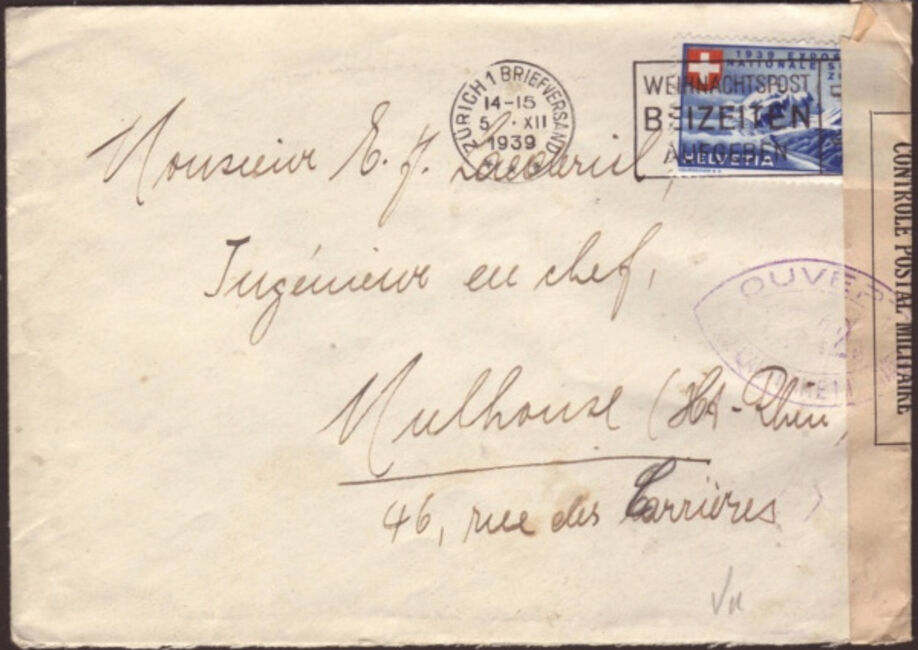 ZÜRICH 1 BRIEFVERSAND
14-15
5 XII
1939
1939 EXPOS
NATIONALE S
HELVETIA
WEIHNACHTSPOST
BEIZEITEN
AUFGEBEN
Monsieur E. J.
Ingénieur en chef,
Mulhouse (Ht-Rhin
46, rue des Carrières
OUVER
CONTROLE POSTAL MILITAIRE